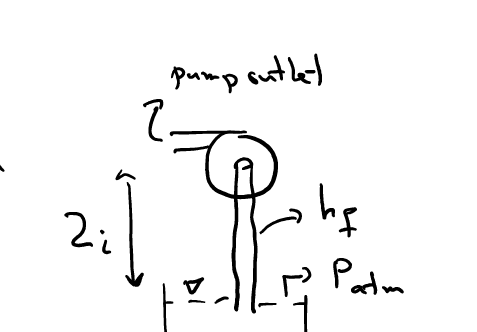 pump outlet
Zi
hf
Patm